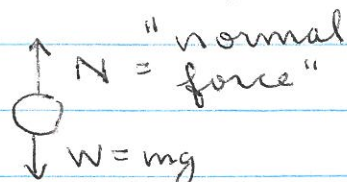 N = "normal
force"
W = mg